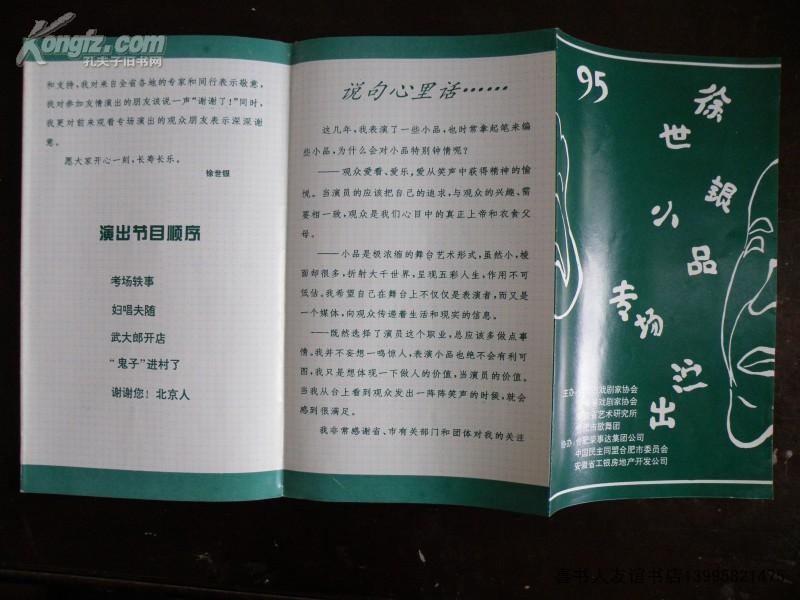 Kongfz.com
孔夫子旧书网
和支持，我对来自全省各地的专家和同行表示敬意，
我对参加友情演出的朋友该说一声“谢谢了！”同时，
我更对前来观看专场演出的观众朋友表示深深谢
意。
愿大家开心一刻，长寿长乐。
徐世银
演出节目顺序
考场轶事
妇唱夫随
武大郎开店
“鬼子”进村了
谢谢您！北京人
说句心里话……
这几年，我表演了一些小品，也时常拿起笔来编
些小品，为什么会对小品特别钟情呢？
——观众爱看、爱乐，爱从笑声中获得精神的愉
悦。当演员的应该把自己的追求，与观众的兴趣、需
要相一致，观众是我们心目中的真正上帝和衣食父
母。
——小品是极浓缩的舞台艺术形式，虽然小，棱
面却很多，折射大千世界，呈现五彩人生，作用不可
低估。我希望自己在舞台上不仅仅是表演者，而又是
一个媒体，向观众传递着生活和现实的信息。
——既然选择了演员这个职业，总应该多做点事
情。我并不妄想一鸣惊人，表演小品也绝不会有利可
图，我只是想体现一下做人的价值，当演员的价值。
当我从台上看到观众发出一阵阵笑声的时候，就会
感到很满足。
我非常感谢省、市有关部门和团体对我的关注
95
徐世银小品专场演出
主办：戏剧家协会
戏剧家协会
省艺术研究所
市歌舞团
协办：合肥荣事达集团公司
中国民主同盟合肥市委员会
安徽省工银房地产开发公司
喜书人友谊书店13995821475